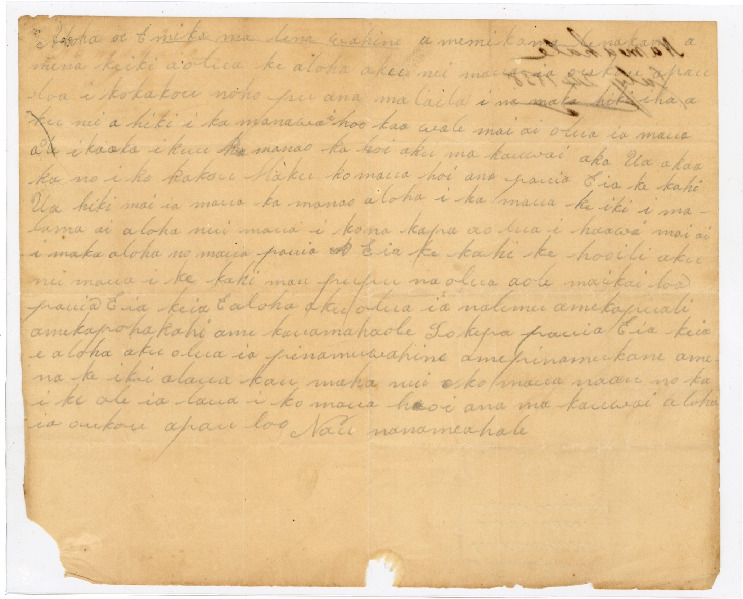 Aloha oe Emeka ma lena wahine a memikane lenakane a
mena keiki a olua ke aloha aku nei maua ia oukou apau
loa i kokakou noho pu ana ma laila i na mala hiki iha a
nui a hiki i ka manawa hoo kaa wale mai ai olua ia maua
i kuu manao ka hoi aku ma kauwai aka Ua akaa
ka no i ko kakou Haku ko maua hoi ana pauia Eia ke kahi
Ua hiki mai ia maua ka manao aloha i ka maua ke iki i ma-
lama ai aloha nui maua i kona kapa a olua i haawi mai ai
i maka aloha no maua pauia Eia ke kahi ke hooili aku
nei maua i ke kahi mau pupu na olua aole maikai loa
pauia Eia keia E aloha aku olua ia nalimu amekapuali
amekapohakahi ame kauamahaole Iokepa pauia Eia keia
e aloha aku olua ia pinamuwahine amepinamukane ame-
na ke iki alaua kau maka nui ko maua naau no ka
i ke ole ia laua i ko maua hooi ana ma kauwai aloha
ia oukou apau loa Nau nanameahale
Nameahale